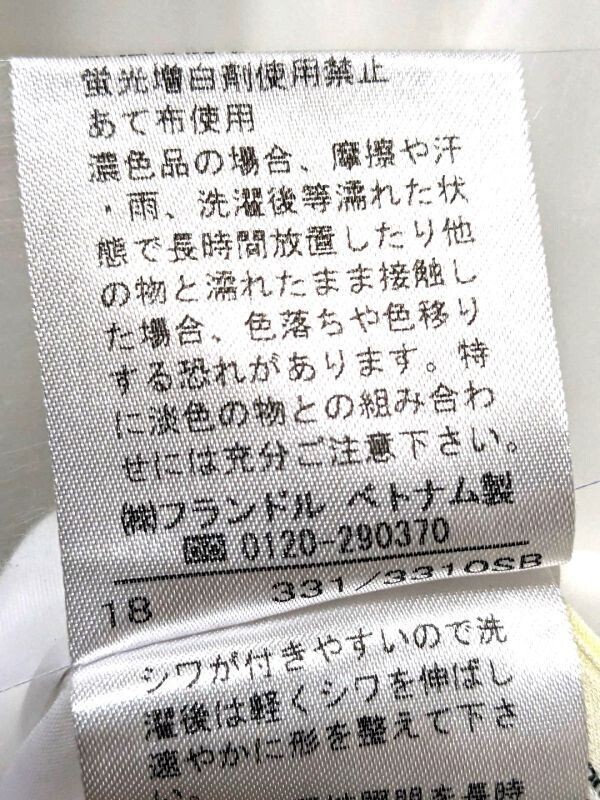 蛍光増白剤使用禁止
あて布使用
濃色品の場合、摩擦や汗
・雨、洗濯後等濡れた状
態で長時間放置したり他
の物と濡れたまま接触し
た場合、色落ちや色移り
する恐れがあります。特
に淡色の物との組み合わ
せには充分ご注意下さい。
㈱フランドル ベトナム製
0120-290370
18 331/3310SB
シワが付きやすいので洗
濯後は軽くシワを伸ばし
速やかに形を整えて下さ
時間を長時